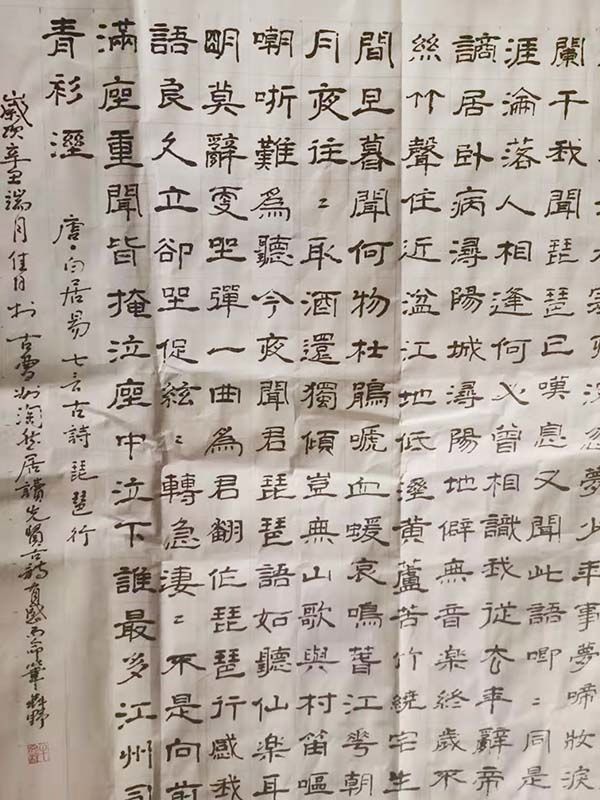 夜深忽夢少年事夢啼妝淚
闌干我聞琵琶已嘆息又聞此語唧〻同是
涯淪落人相逢何必曾相識我從去年辭帝
謫居臥病潯陽城潯陽地僻無音樂終歲不
絲竹聲住近湓江地低溼黃蘆苦竹繞宅生
間旦暮聞何物杜鵑啼血猨哀鳴春江花朝
月夜往〻取酒還獨傾豈無山歌與村笛嘔
嘲哳難為聽今夜聞君琵琶語如聽仙樂耳
明莫辭更坐彈一曲為君翻作琵琶行感我
語良久立卻坐促絃〻轉急淒〻不是向前
滿座重聞皆掩泣座中泣下誰最多江州司
青衫溼
唐·白居易七言古詩琵琶行
歲次辛丑端月佳日於古曹州淘然居讀先賢古詩有感而命筆